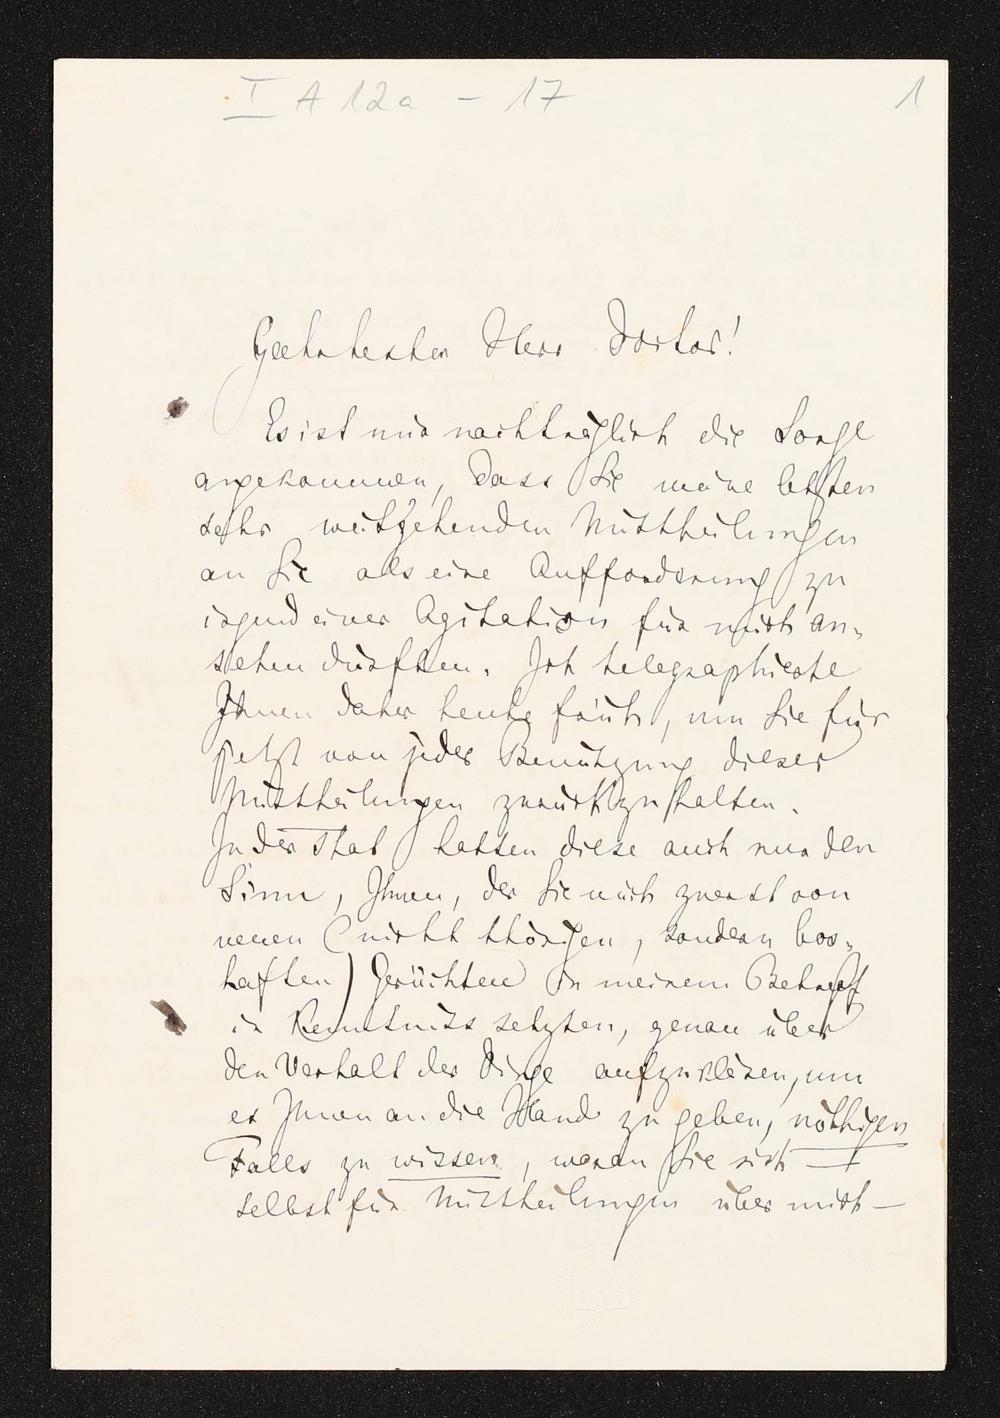 I A 12a – 17 1
Geehrtester Herr Doctor!
Es ist mir nachträglich die Sorge
angekommen, dass Sie meine letzten
sehr weitgehenden Mittheilungen
an Sie als eine Aufforderung zu
irgend einer Agitation für mich an-
sehen dürften. Ich telegraphierte
Ihnen daher heute früh, um Sie für
jetzt von jeder Benützung dieser
Mittheilungen zurückzuhalten.
In der That hatten diese auch nur den
Sinn, Ihnen, der Sie mich zuerst von
neuen (nicht thörigen, sondern bos-
haften) Gerüchten in meinem Betreff
in Kenntniss setzten, genau über
den Verhalt der Dinge aufzuklären, um
es Ihnen an die Hand zu geben, nöthigen
Falls zu wissen, woran Sie sich –
selbst für Mittheilungen über mich –